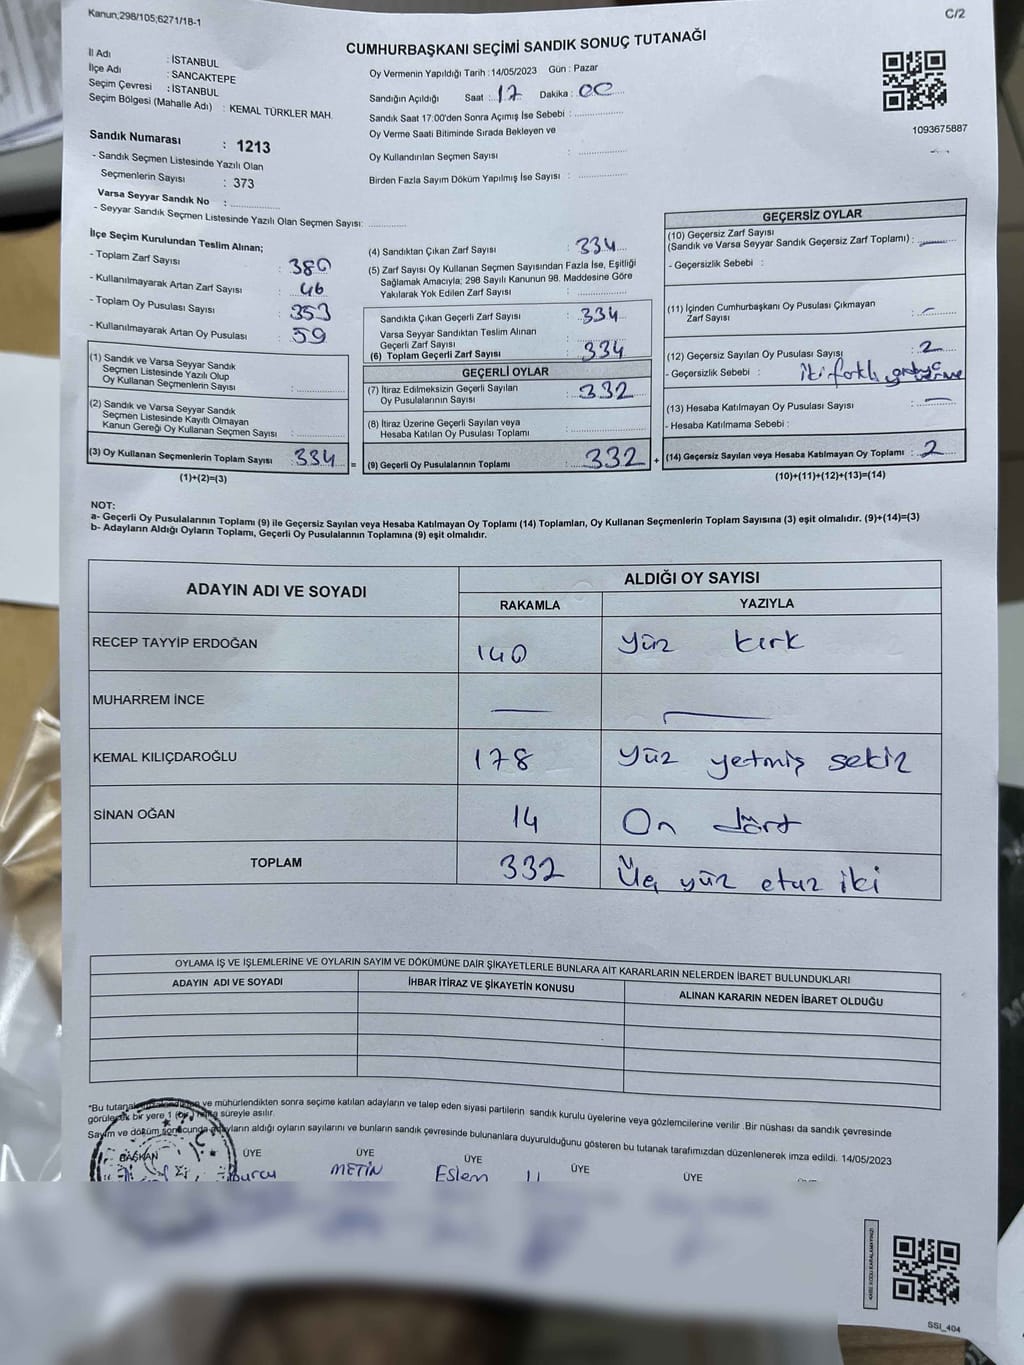 Kanun;298/105;6271/18-1
C/2
CUMHURBAŞKANI SEÇİMİ SANDIK SONUÇ TUTANAĞI
İl Adı : İSTANBUL
İlçe Adı : SANCAKTEPE
Seçim Çevresi : İSTANBUL
Seçim Bölgesi (Mahalle Adı) : KEMAL TÜRKLER MAH.
Sandık Numarası : 1213
- Sandık Seçmen Listesinde Yazılı Olan
Seçmenlerin Sayısı : 373
Varsa Seyyar Sandık No :
- Seyyar Sandık Seçmen Listesinde Yazılı Olan Seçmen Sayısı:
Oy Vermenin Yapıldığı Tarih : 14/05/2023 Gün : Pazar
Sandığın Açıldığı Saat : 17 Dakika : 00
Sandık Saat 17:00'den Sonra Açımış İse Sebebi :
Oy Verme Saati Bitiminde Sırada Bekleyen ve
Oy Kullandırılan Seçmen Sayısı :
Birden Fazla Sayım Döküm Yapılmış İse Sayısı :
1093675887
İlçe Seçim Kurulundan Teslim Alınan;
- Toplam Zarf Sayısı : 380
- Kullanılmayarak Artan Zarf Sayısı : 46
- Toplam Oy Pusulası Sayısı : 353
- Kullanılmayarak Artan Oy Pusulası : 59
(1) Sandık ve Varsa Seyyar Sandık
Seçmen Listesinde Yazılı Olup
Oy Kullanan Seçmenlerin Sayısı :
(2) Sandık ve Varsa Seyyar Sandık
Seçmen Listesinde Kayıtlı Olmayan
Kanun Gereği Oy Kullanan Seçmen Sayısı :
(3) Oy Kullanan Seçmenlerin Toplam Sayısı : 334 =
(1)+(2)=(3)
(4) Sandıktan Çıkan Zarf Sayısı : 334
(5) Zarf Sayısı Oy Kullanan Seçmen Sayısından Fazla İse, Eşitliği
Sağlamak Amacıyla; 298 Sayılı Kanunun 98. Maddesine Göre
Yakılarak Yok Edilen Zarf Sayısı :
Sandıkta Çıkan Geçerli Zarf Sayısı : 334
Varsa Seyyar Sandıktan Teslim Alınan
Geçerli Zarf Sayısı :
(6) Toplam Geçerli Zarf Sayısı : 334
GEÇERLİ OYLAR
(7) İtiraz Edilmeksizin Geçerli Sayılan
Oy Pusulalarının Sayısı : 332
(8) İtiraz Üzerine Geçerli Sayılan veya
Hesaba Katılan Oy Pusulası Toplamı :
(9) Geçerli Oy Pusulalarının Toplamı : 332 +
GEÇERSİZ OYLAR
(10) Geçersiz Zarf Sayısı
(Sandık ve Varsa Seyyar Sandık Geçersiz Zarf Toplamı) :
- Geçersizlik Sebebi :
(11) İçinden Cumhurbaşkanı Oy Pusulası Çıkmayan
Zarf Sayısı :
(12) Geçersiz Sayılan Oy Pusulası Sayısı : 2
- Geçersizlik Sebebi : iki farklı
(13) Hesaba Katılmayan Oy Pusulası Sayısı :
- Hesaba Katılmama Sebebi :
(14) Geçersiz Sayılan veya Hesaba Katılmayan Oy Toplamı : 2
(10)+(11)+(12)+(13)=(14)
NOT:
a- Geçerli Oy Pusulalarının Toplamı (9) ile Geçersiz Sayılan veya Hesaba Katılmayan Oy Toplamı (14) Toplamları, Oy Kullanan Seçmenlerin Toplam Sayısına (3) eşit olmalıdır. (9)+(14)=(3)
b- Adayların Aldığı Oyların Toplamı, Geçerli Oy Pusulalarının Toplamına (9) eşit olmalıdır.
ADAYIN ADI VE SOYADI ALDIĞI OY SAYISI
RAKAMLA YAZIYLA
RECEP TAYYİP ERDOĞAN 140 Yüz kırk
MUHARREM İNCE
KEMAL KILIÇDAROĞLU 178 Yüz yetmiş sekiz
SİNAN OĞAN 14 On dört
TOPLAM 332 Üç yüz otuz iki
OYLAMA İŞ VE İŞLEMLERİNE VE OYLARIN SAYIM VE DÖKÜMÜNE DAİR ŞİKAYETLERLE BUNLARA AİT KARARLARIN NELERDEN İBARET BULUNDUKLARI
ADAYIN ADI VE SOYADI İHBAR İTİRAZ VE ŞİKAYETİN KONUSU ALINAN KARARIN NEDEN İBARET OLDUĞU
*Bu ve mühürlendikten sonra seçime katılan adayların ve talep eden siyasi partilerin sandık kurulu üyelerine veya gözlemcilerine verilir .Bir nüshası da sandık çevresinde
görülecek bir yere 1 süreyle asılır.
Sayım ve döküm sonucunda adayların aldığı oyların sayılarını ve bunların sandık çevresinde bulunanlara duyurulduğunu gösteren bu tutanak tarafımızdan düzenlenerek imza edildi. 14/05/2023
BAŞKAN ÜYE ÜYE ÜYE ÜYE ÜYE
Burcu METİN Eslem
SSI_404